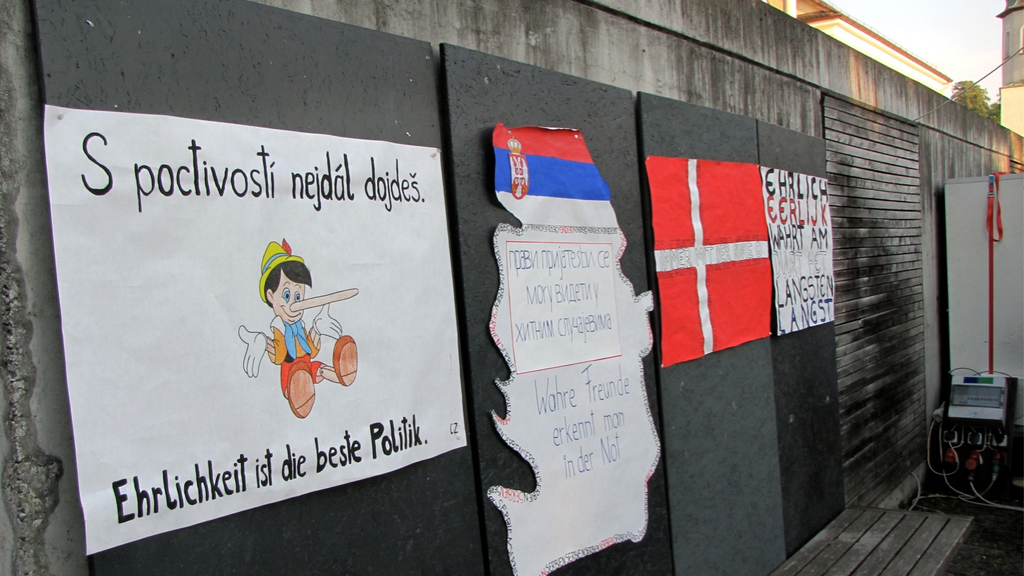 S poctivostí nejdál dojdeš.
Ehrlichkeit ist die beste Politik.
CZ
прави пријатељи се
могу видети у
хитним случајевима
Wahre Freunde
erkennt man
in der Not
EHRLICH
EERLIJK
WÄHRT AM
LÄNGSTEN
LANGST